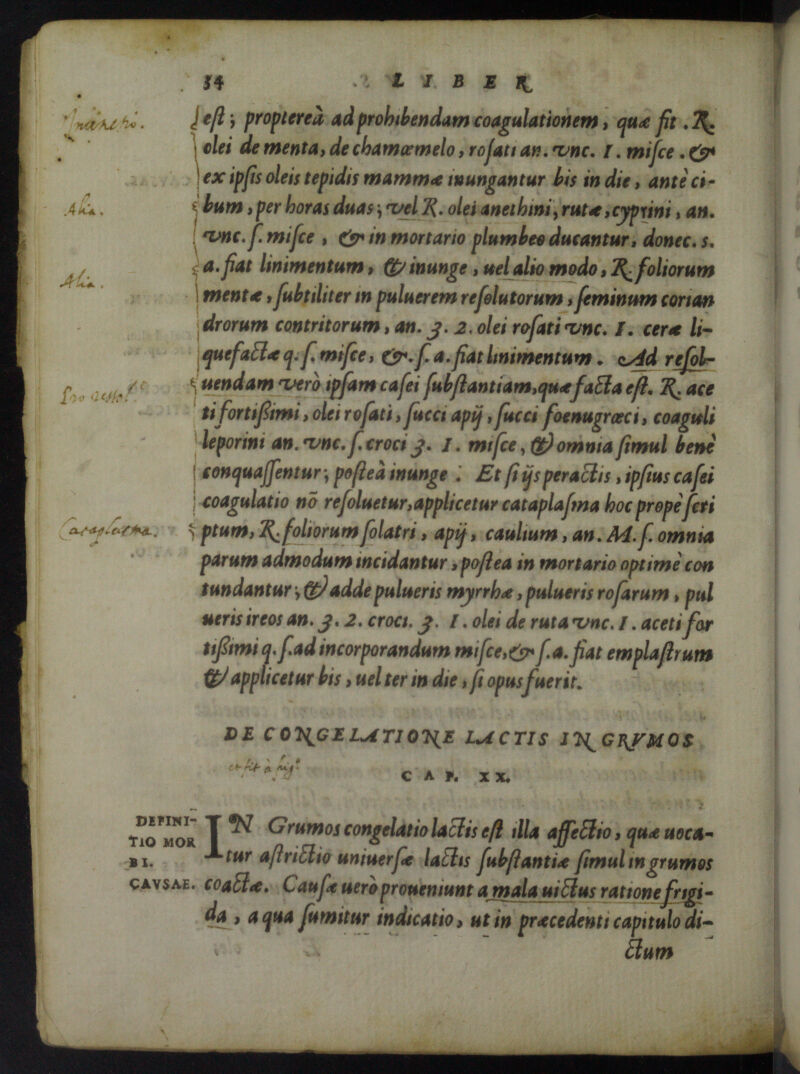 54 LIBER
est; propterea ad prohibendam coagulationem, quæ fit. ℞.
olei de menta, de chamæmelo, rosati an. vnc. 1. misce. &
ex ipsis oleis tepidis mammæ inungantur bis in die, antè ci-
bum, per horas duas; vel ℞. olei anethini, rutæ, cyprini, an.
vnc. s. misce, & in mortario plumbeo ducantur, donec. s.
a. fiat linimentum, & inunge, uel alio modo, ℞. foliorum
mentæ, subtiliter in puluerem resolutorum, seminum corian
drorum contritorum, an. ʒ. 2. olei rosati vnc. 1. ceræ li-
quefactæ q. s. misce, &. s. a. fiat linimentum. Ad resol-
uendam vero ipsam casei substantiam, quæ facta est. ℞. ace
ti fortißimi, olei rosati, succi apij, succi foenugræci, coaguli
leporini an. vnc. s. croci ʒ. 1. misce, & omnia simul benè
conquassentur; postea inunge. Et si ijs peractis, ipsius casei
coagulatio nō resoluetur, applicetur cataplasma hoc propè scri
ptum, ℞. foliorum solatri, apij, caulium, an. M. s. omnia
parum admodum incidantur, postea in mortario optimè con
tundantur; & adde pulueris myrrhæ, pulueris rosarum, pul
ueris ireos an. ʒ. 2. croci. ʒ. 1. olei de ruta vnc. 1. aceti for
tißimi q. s. ad incorporandum misce, & s. a. fiat emplastrum
& applicetur bis, uel ter in die, si opus fuerit.
DE CONGELATIONE LACTIS IN GRVMOS
CAP. XX.
DEFINI-
TIO MOR
BI.
CAVSAE.
IN Grumos congelatio lactis est illa affectio, quæ uoca-
tur astrictio uniuersæ lactis substantiæ simul in grumos
coactæ. Causæ uero proueniunt a mala uictus ratione frigi-
da, a qua sumitur indicatio, ut in præcedenti capitulo di-
ctum
Alia.
Alia.